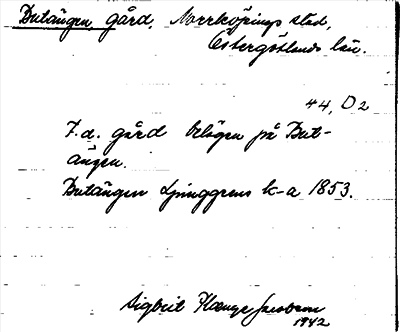 Butängen, gård, Norrköpings stad,
Östergötlands län.
44, D2
F.d. gård belägen på But-
ängen.
Butängen Ljunggrens k-a 1853.
Sigbrit Plænge Jacobson
1942